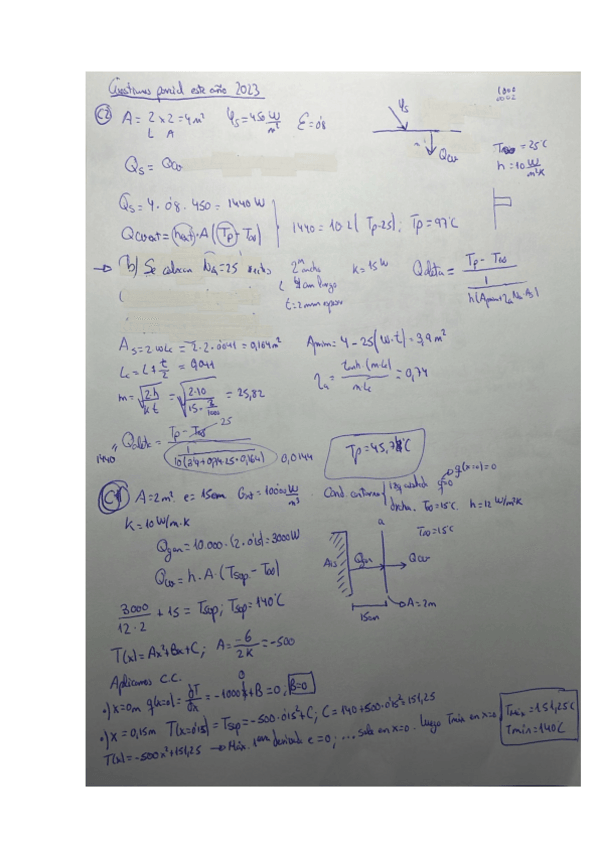 Cuestiones parcial este año 2023
C2 A = 2 x 2 = 4 m² φs = 450 W/m² ε = 0'8
L A
φs
Qcv
T∞ = 25°C
h = 10 W/m²K
Qs = Qcv
Qs = 4 · 0'8 · 450 = 1440 W
Qcvext = hext · A (Tp - T∞)
1440 = 10·2 ( Tp-25); Tp = 97°C
→ b) Se colocan Na = 25 2m ancho K = 15 W
L 4cm largo
t = 2mm espesor
Qaleta = Tp - T∞ / 1 / h(
As = 2·w·Lc = 2·2·0'041 = 0,164 m²
Amin = 4 - 25(w·t) = 3,9 m²
Lc = L + t/2 = 0,041
ηa = tanh(m·Lc) / m·Lc = 0,74
m = √2·h / k·t = √2·10 / 15 · 2/1000 = 25,82
1440 = Qaleta = Tp - T∞ 25 / 1 / 10(3'9+0,74·25·0,164) 0,0144
Tp = 45,78°C
C1 A = 2m² e = 15cm Gint = 10000 W/m³
Cond. contorno izq. aislada q=0 q(x=0)=0
dcha. T∞ = 15°C. h = 12 W/m²K
K = 10 W/m·K
Qgen = 10.000 · (2·0'15) = 3000W
Qcv = h · A · (Tsup - T∞)
T∞ = 15°C
Ais Qgen Qcv
15cm
A = 2m
3000 / 12·2 + 15 = Tsup; Tsup = 140°C
T(x) = Ax² + Bx + C; A = -G / 2K = -500
Aplicamos C.C.
·) x=0m q(x=0) = dT/dx = -1000x + B = 0; B=0
·) x = 0,15m T(x=0'15) = Tsup = -500·0'15² + C; C = 140 + 500·0'15² = 151,25
T(x) = -500x² + 151,25 → Máx. 1era derivada e = 0; ... sale en x=0. Luego Tmáx en x=0
Tmáx = 151,25°C
Tmin = 140°C